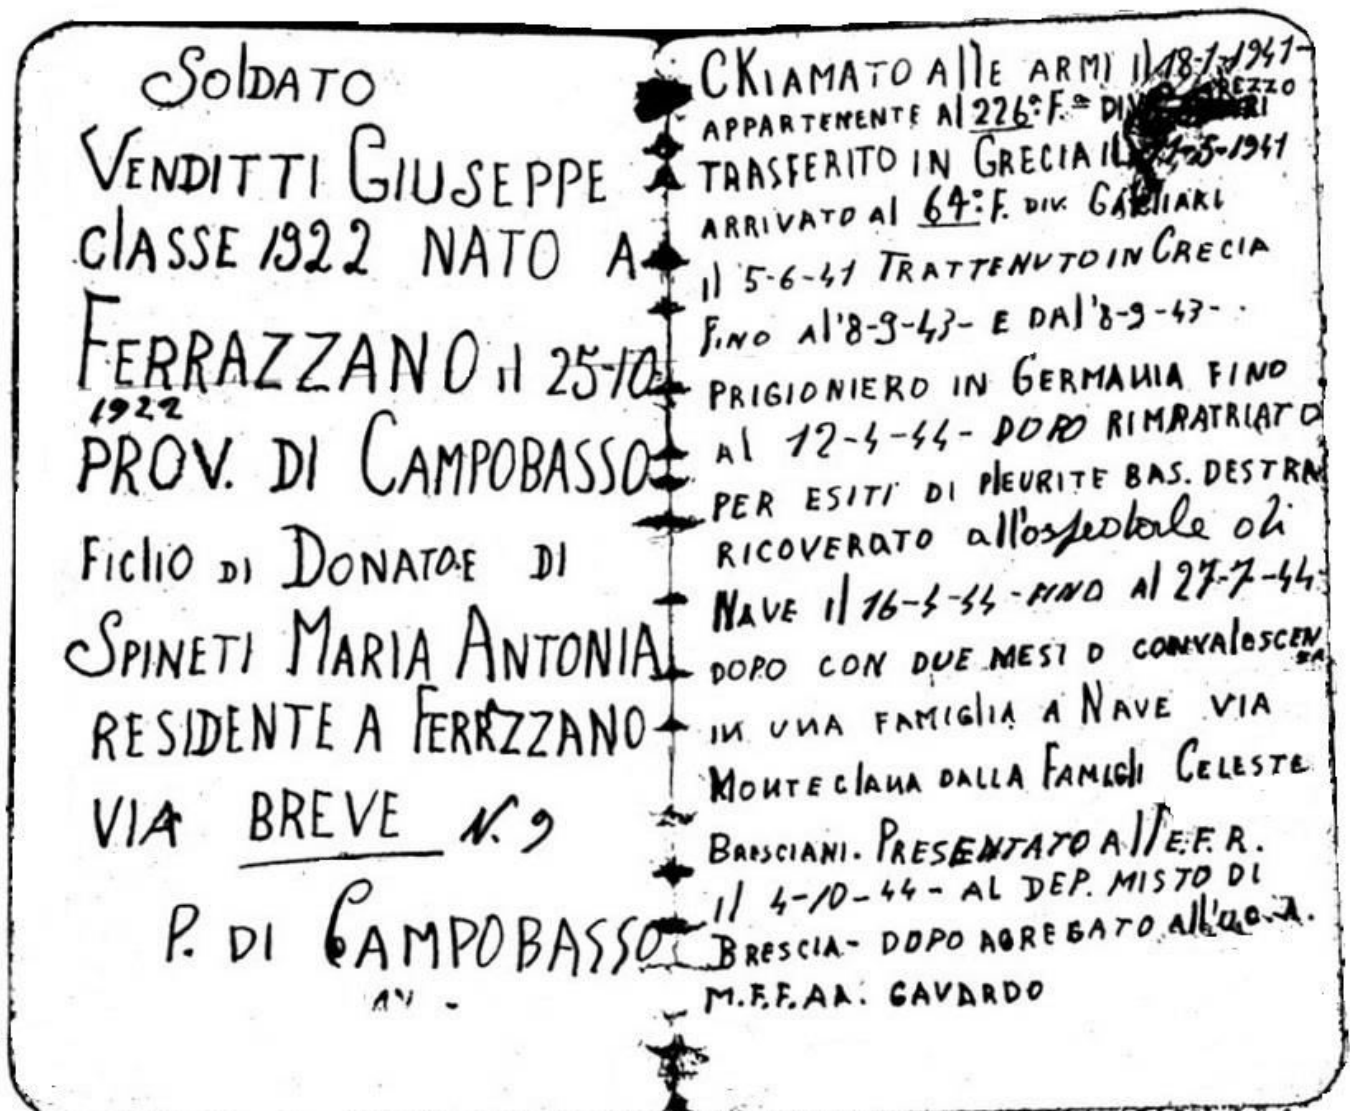 SOLDATO
VENDITTI GIUSEPPE
CLASSE 1922 NATO A
FERRAZZANO il 25-10
1922
PROV. DI CAMPOBASSO
FIGLIO DI DONATO E DI
SPINETI MARIA ANTONIA
RESIDENTE A FERRZZANO
VIA BREVE N. 9
P. DI CAMPOBASSO
CHIAMATO AllE ARMI il 18-1-1941-
APPARTENENTE Al 226º F.ª DIV. AREZZO
TRASFERITO IN GRECIA IL 11-5-1941
ARRIVATO Al 64º F. DIV. CAGLIARI
il 5-6-41 TRATTENUTO IN GRECIA
FINO Al'8-9-43- E DAl'8-9-43-
PRIGIONIERO IN GERMANIA FINO
Al 12-4-44- DOPO RIMPATRIATO
PER ESITI DI PlEURITE BAS. DESTRA
RICOVERATO all'ospedale di
NAVE il 16-4-44-FINO Al 27-7-44-
DOPO CON DUE MESI D CONVALESCENZA
IN UNA FAMIGLIA A NAVE VIA
MONTECLANA DALLA FAMIGLI CELESTE
BRESCIANI. PRESENTATO All'E.F.R.
il 4-10-44- AL DEP. MISTO DI
BRESCIA- DOPO AGREGATO All'
M.F.F.AA. GAVARDO